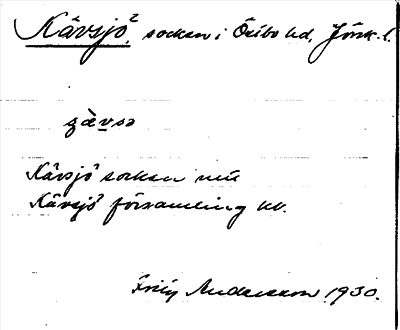 Kävsjö², socken i Östbo hd, Jönk. l.
Kävsjö socken
Kävsjö församling
Andersson 1930.